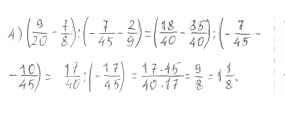 4) (9/20 - 7/8) : (-7/45 - 2/9) = (18/40 - 35/40) : (-7/45 -
- 10/45) = 17/40 : (-17/45) = 17·45/40·17 = 9/8 = 1 1/8.